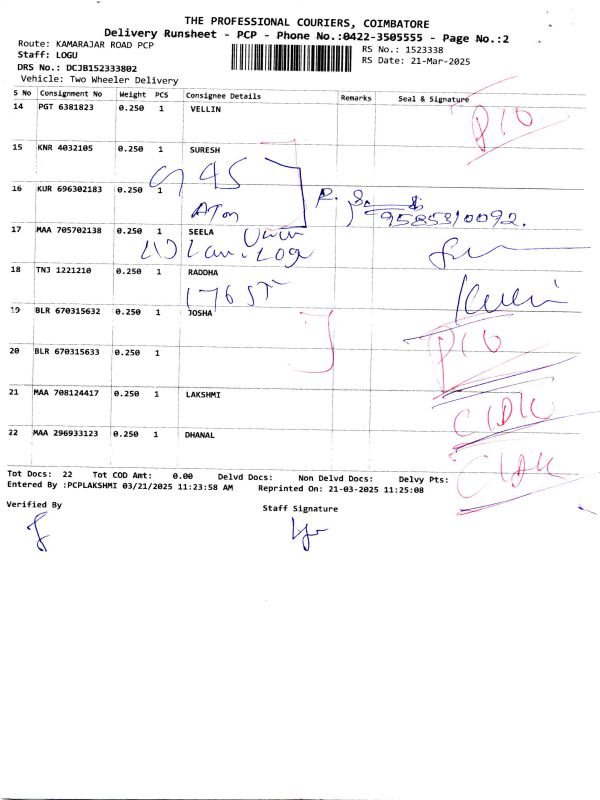 THE PROFESSIONAL COURIERS, COIMBATORE
Delivery Runsheet - PCP - Phone No.:0422-3505555 - Page No.:2
Route: KAMARAJAR ROAD PCP
RS No.: 1523338
Staff: LOGU
RS Date: 21-Mar-2025
DRS No.: DCJB152333802
Vehicle: Two Wheeler Delivery
S No Consignment No Weight PCS Consignee Details Remarks Seal & Signature
14 PGT 6381823 0.250 1 VELLIN
15 KNR 4032105 0.250 1 SURESH
945
16 KUR 696302183 0.250 1
9585310092.
17 MAA 705702138 0.250 1 SEELA
18 TNJ 1221210 0.250 1 RADDHA
176 ST
19 BLR 670315632 0.250 1 JOSHA
20 BLR 670315633 0.250 1
21 MAA 708124417 0.250 1 LAKSHMI
22 MAA 296933123 0.250 1 DHANAL
Tot Docs: 22 Tot COD Amt: 0.00 Delvd Docs: Non Delvd Docs: Delvy Pts:
Entered By :PCPLAKSHMI 03/21/2025 11:23:58 AM Reprinted On: 21-03-2025 11:25:08
Verified By
Staff Signature